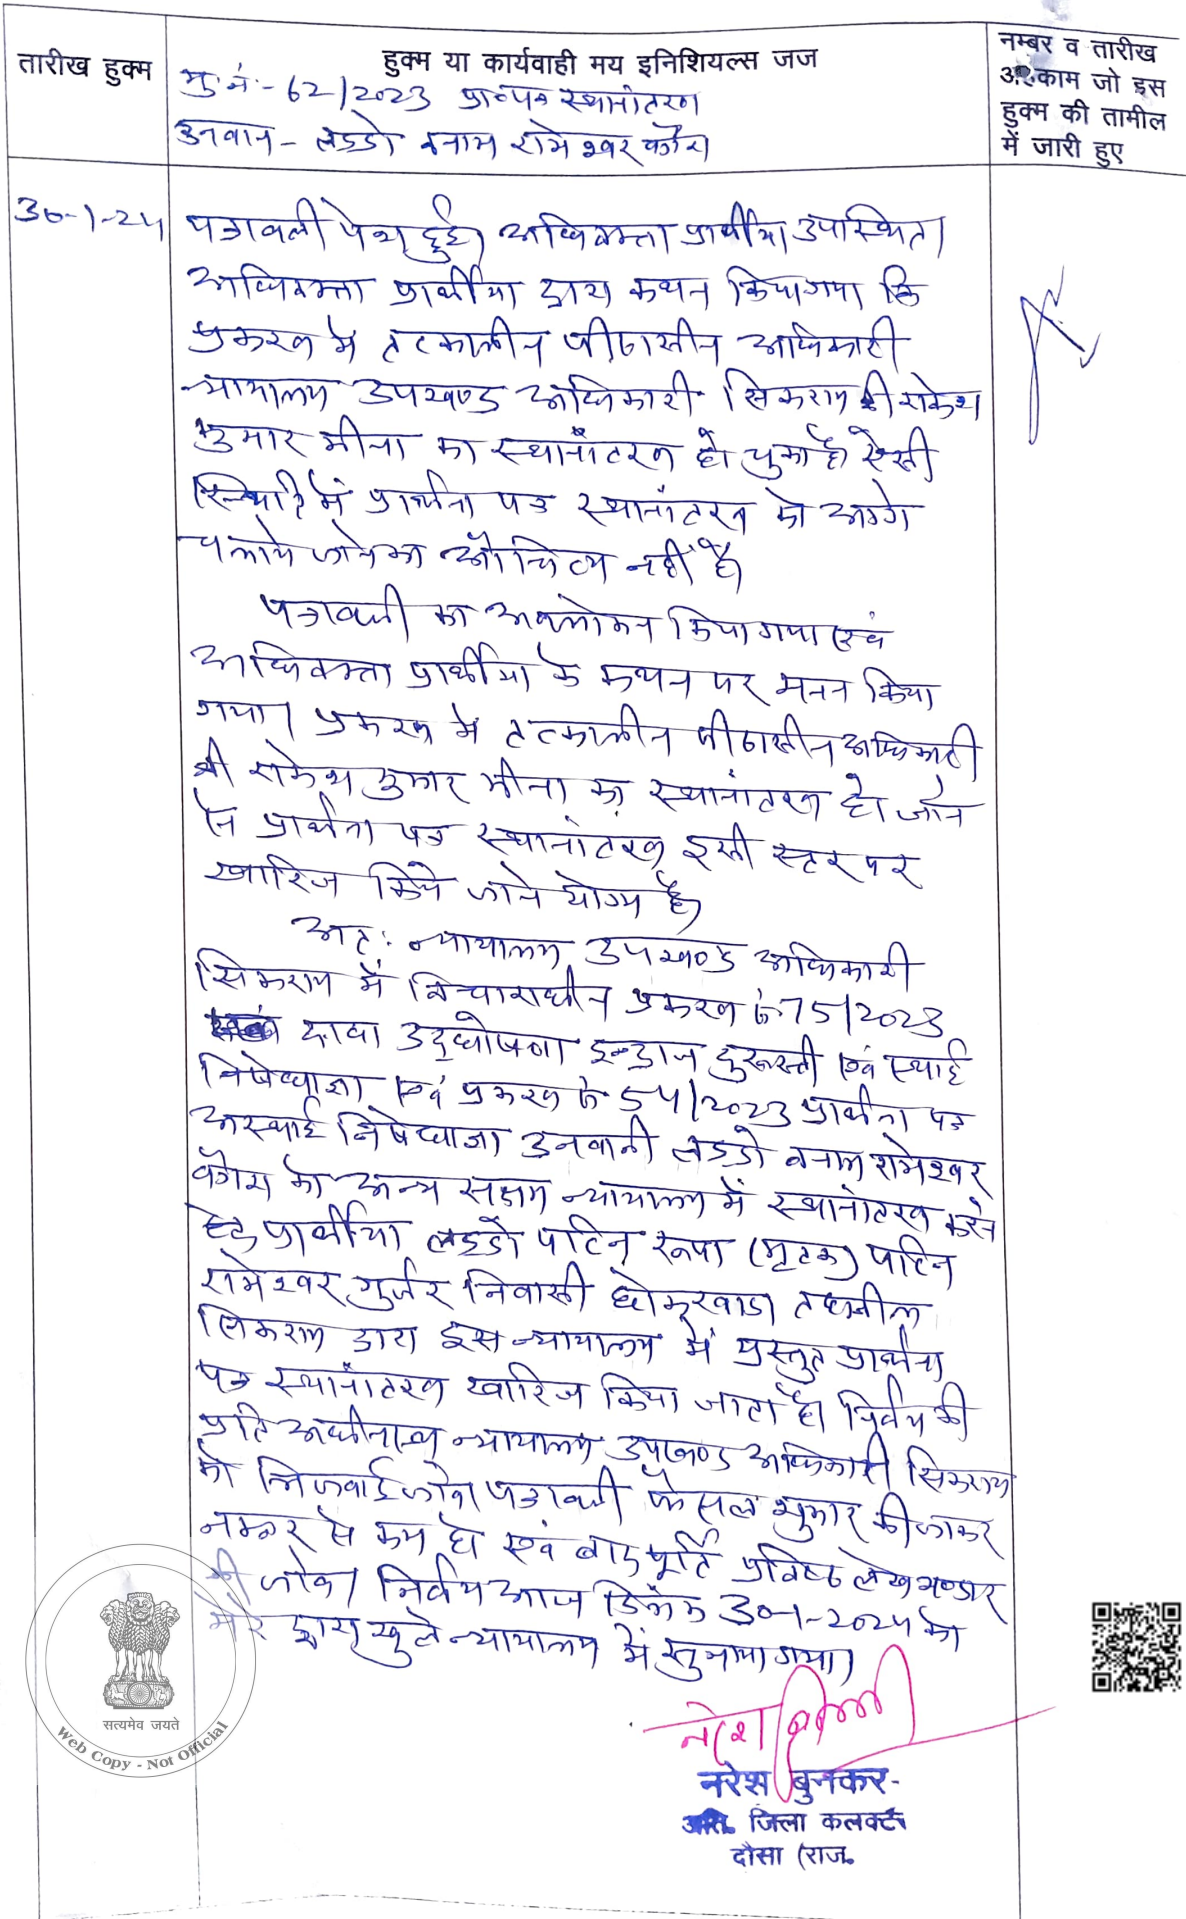 तारीख हुक्म
हुक्म या कार्यवाही मय इनिशियल्स जज
नम्बर व तारीख
अहकाम जो इस
हुक्म की तामील
में जारी हुए
मु.नं.-62/2023 प्रा०पत्र स्थानांतरण
उनवान- लड्डो बनाम रामेश्वर वगैरा
30-1-24
पत्रावली पेश हुई। अधिवक्ता प्रार्थीया उपस्थित।
अधिवक्ता प्रार्थीया द्वारा कथन किया गया कि
प्रकरण में तत्कालीन पीठासीन अधिकारी
न्यायालय उपखण्ड अधिकारी सिकराय श्री राकेश
कुमार मीना का स्थानांतरण हो चुका है ऐसी
स्थिति में प्रार्थना पत्र स्थानांतरण को आगे
चलाये जाने का औचित्य नहीं है।
पत्रावली का अवलोकन किया गया एवं
अधिवक्ता प्रार्थीया के कथन पर मनन किया
गया। प्रकरण में तत्कालीन पीठासीन अधिकारी
श्री राकेश कुमार मीना का स्थानांतरण हो जाने
से प्रार्थना पत्र स्थानांतरण इसी स्टर पर
खारिज किये जाने योग्य है।
अत: न्यायालय उपखण्ड अधिकारी
सिकराय में विचाराधीन प्रकरण सं 75/2023
दावा उद्घोषणा इन्द्राज दुरूस्ती एवं स्थाई
निषेधाज्ञा एवं प्रकरण सं 54/2023 प्रार्थना पत्र
अस्थाई निषेधाज्ञा उनवानी लड्डो बनाम रामेश्वर
वगैरा को अन्य सक्षम न्यायालय में स्थानांतरण करने
हेतु प्रार्थीया लड्डो पत्नि रूपा (मृतक) पत्नि
रामेश्वर गुर्जर निवासी तहसील
सिकराय द्वारा इस न्यायालय में प्रस्तुत प्रार्थना
पत्र स्थानांतरण खारिज किया जाता है। निर्णय की
प्रति अधीनस्थ न्यायालय उपखण्ड अधिकारी सिकराय
को भिजवाई जावे। पत्रावली फैसल शुमार की जाकर
नम्बर से कम हो एवं बाद पूर्ति प्रविष्ठ लेख भण्डार
की जावे। निर्णय आज दिनांक 30-1-2024 को
मेरे द्वारा खुले न्यायालय में सुनाया गया।
नरेश बुनकर
अति. जिला कलक्टर
दौसा (राज.
सत्यमेव जयते
Web Copy - Not Official